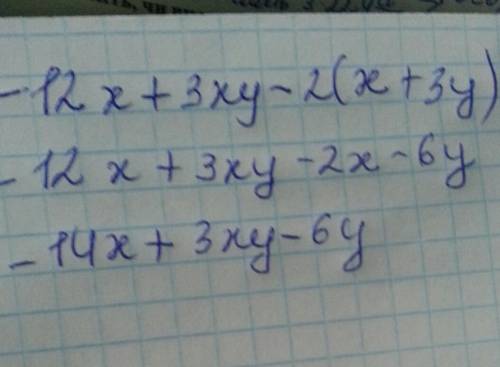 -12x + 3xy - 2(x + 3y)
- 12x + 3xy - 2x - 6y
- 14x + 3xy - 6y